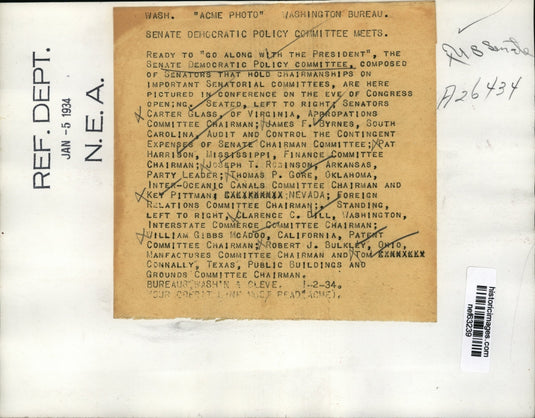 WASH. "ACME PHOTO" WASHINGTON BUREAU.
SENATE DEMOCRATIC POLICY COMMITTEE MEETS.
READY TO "GO ALONG WITH THE PRESIDENT", THE
SENATE DEMOCRATIC POLICY COMMITTEE, COMPOSED
OF SENATORS THAT HOLD CHAIRMANSHIPS ON
IMPORTANT SENATORIAL COMMITTEES, ARE HERE
PICTURED IN CONFERENCE ON THE EVE OF CONGRESS
OPENING. SEATED, LEFT TO RIGHT, SENATORS
CARTER GLASS, OF VIRGINIA, APPROPATIONS
COMMITTEE CHAIRMAN; JAMES F. BYRNES, SOUTH
CAROLINA, AUDIT AND CONTROL THE CONTINGENT
EXPENSES OF SENATE CHAIRMAN COMMITTEE; PAT
HARRISON, MISSISSIPPI, FINANCE COMMITTEE
CHAIRMAN; JOSEPH T. ROBINSON, ARKANSAS,
PARTY LEADER; THOMAS P. GORE, OKLAHOMA,
INTER-OCEANIC CANALS COMMITTEE CHAIRMAN AND
KEY PITTMAN, NEVADA; FOREIGN
RELATIONS COMMITTEE CHAIRMAN; STANDING,
LEFT TO RIGHT, CLARENCE C. DILL, WASHINGTON,
INTERSTATE COMMERCE COMMITTEE CHAIRMAN;
WILLIAM GIBBS MCADOO, CALIFORNIA, PATENT
COMMITTEE CHAIRMAN; ROBERT J. BULKLEY, OHIO,
MANFACTURES COMMITTEE CHAIRMAN AND TOM
CONNALLY, TEXAS, PUBLIC BUILDINGS AND
GROUNDS COMMITTEE CHAIRMAN.
BUREAUS WASHIN & CLEVE. 1-2-34.
YOUR CREDIT LINE MUST READ(ACME).
REF. DEPT.
JAN -5 1934
N.E.A.
Senate
A26434
historicimages.com
nef63239